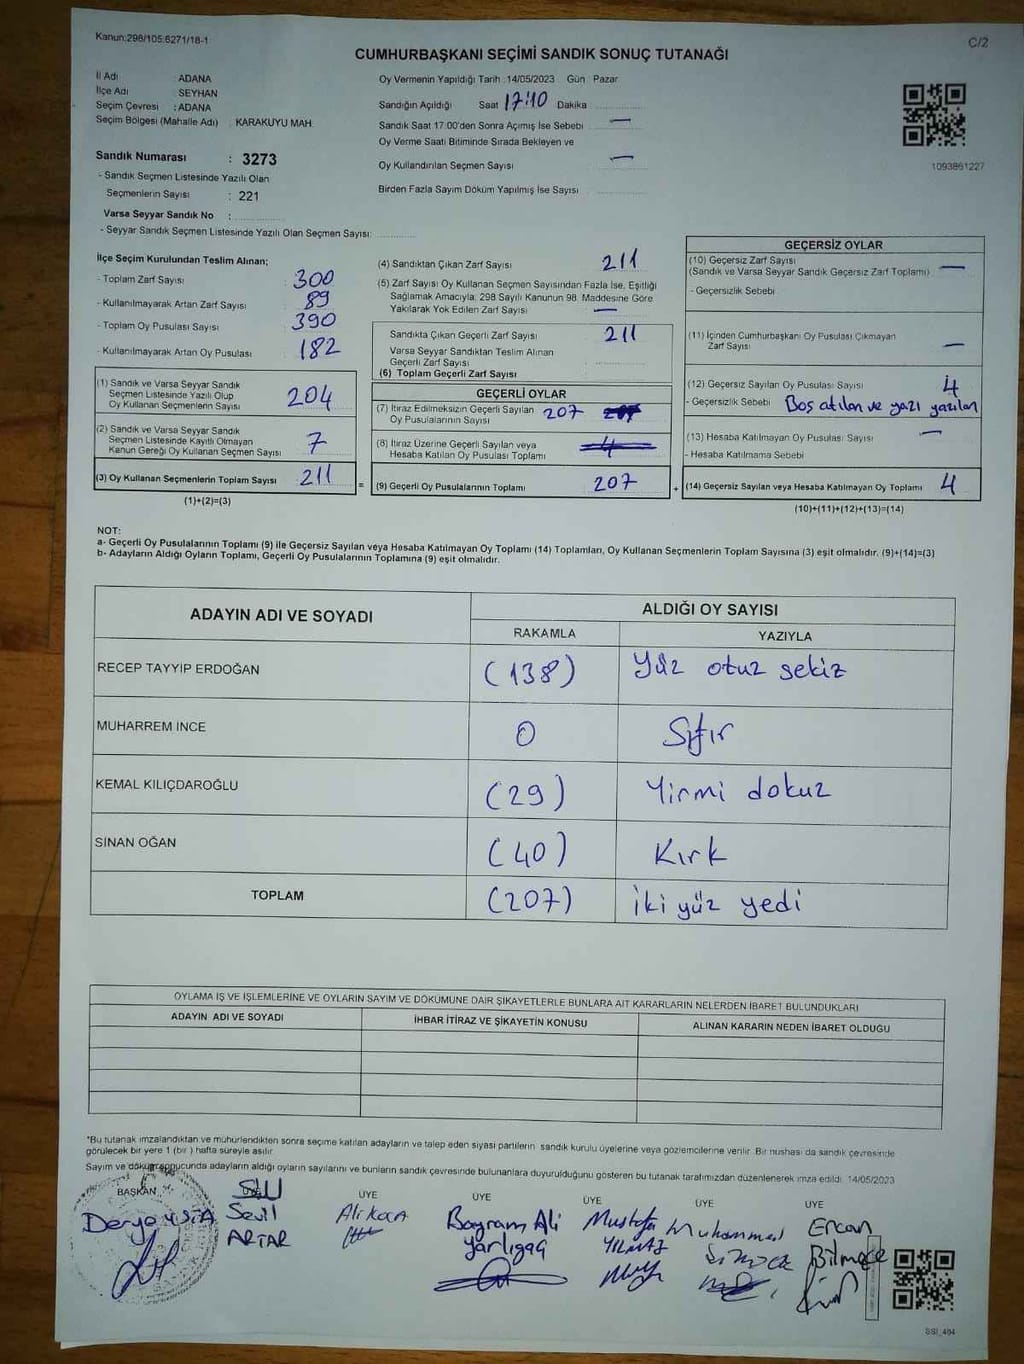 Kanun:298/105.6271/18-1
C/2
CUMHURBAŞKANI SEÇİMİ SANDIK SONUÇ TUTANAĞI
İl Adı ADANA
İlçe Adı : SEYHAN
Seçim Çevresi : ADANA
Seçim Bölgesi (Mahalle Adı) : KARAKUYU MAH.
Oy Vermenin Yapıldığı Tarih : 14/05/2023 Gün Pazar
Sandığın Açıldığı Saat 17:10 Dakika
Sandık Saat 17:00'den Sonra Açımış İse Sebebi —
Oy Verme Saati Bitiminde Sırada Bekleyen ve
Oy Kullandırılan Seçmen Sayısı —
Birden Fazla Sayım Döküm Yapılmış İse Sayısı
1093861227
Sandık Numarası : 3273
- Sandık Seçmen Listesinde Yazılı Olan
Seçmenlerin Sayısı : 221
Varsa Seyyar Sandık No :
- Seyyar Sandık Seçmen Listesinde Yazılı Olan Seçmen Sayısı:
İlçe Seçim Kurulundan Teslim Alınan;
- Toplam Zarf Sayısı 300
- Kullanılmayarak Artan Zarf Sayısı 89
- Toplam Oy Pusulası Sayısı 390
- Kullanılmayarak Artan Oy Pusulası 182
(1) Sandık ve Varsa Seyyar Sandık
Seçmen Listesinde Yazılı Olup
Oy Kullanan Seçmenlerin Sayısı 204
(2) Sandık ve Varsa Seyyar Sandık
Seçmen Listesinde Kayıtlı Olmayan
Kanun Gereği Oy Kullanan Seçmen Sayısı 7
(3) Oy Kullanan Seçmenlerin Toplam Sayısı 211
(1)+(2)=(3)
=
(4) Sandıktan Çıkan Zarf Sayısı 211
(5) Zarf Sayısı Oy Kullanan Seçmen Sayısından Fazla İse, Eşitliği
Sağlamak Amacıyla; 298 Sayılı Kanunun 98. Maddesine Göre
Yakılarak Yok Edilen Zarf Sayısı —
Sandıkta Çıkan Geçerli Zarf Sayısı 211
Varsa Seyyar Sandıktan Teslim Alınan
Geçerli Zarf Sayısı
(6) Toplam Geçerli Zarf Sayısı
GEÇERLİ OYLAR
(7) İtiraz Edilmeksizin Geçerli Sayılan
Oy Pusulalarının Sayısı 207
(8) İtiraz Üzerine Geçerli Sayılan veya
Hesaba Katılan Oy Pusulası Toplamı
(9) Geçerli Oy Pusulalarının Toplamı 207
+
GEÇERSİZ OYLAR
(10) Geçersiz Zarf Sayısı
(Sandık ve Varsa Seyyar Sandık Geçersiz Zarf Toplamı) —
- Geçersizlik Sebebi
(11) İçinden Cumhurbaşkanı Oy Pusulası Çıkmayan
Zarf Sayısı —
(12) Geçersiz Sayılan Oy Pusulası Sayısı 4
- Geçersizlik Sebebi Boş atılan ve yazı yazılan
(13) Hesaba Katılmayan Oy Pusulası Sayısı —
- Hesaba Katılmama Sebebi
(14) Geçersiz Sayılan veya Hesaba Katılmayan Oy Toplamı 4
(10)+(11)+(12)+(13)=(14)
NOT:
a- Geçerli Oy Pusulalarının Toplamı (9) ile Geçersiz Sayılan veya Hesaba Katılmayan Oy Toplamı (14) Toplamları, Oy Kullanan Seçmenlerin Toplam Sayısına (3) eşit olmalıdır. (9)+(14)=(3)
b- Adayların Aldığı Oyların Toplamı, Geçerli Oy Pusulalarının Toplamına (9) eşit olmalıdır.
ADAYIN ADI VE SOYADI ALDIĞI OY SAYISI
RAKAMLA YAZIYLA
RECEP TAYYİP ERDOĞAN (138) Yüz otuz sekiz
MUHARREM İNCE 0 Sıfır
KEMAL KILIÇDAROĞLU (29) Yirmi dokuz
SİNAN OĞAN (40) Kırk
TOPLAM (207) iki yüz yedi
OYLAMA İŞ VE İŞLEMLERİNE VE OYLARIN SAYIM VE DÖKÜMÜNE DAİR ŞİKAYETLERLE BUNLARA AİT KARARLARIN NELERDEN İBARET BULUNDUKLARI
ADAYIN ADI VE SOYADI İHBAR İTİRAZ VE ŞİKAYETİN KONUSU ALINAN KARARIN NEDEN İBARET OLDUĞU
*Bu tutanak imzalandıktan ve mühürlendikten sonra seçime katılan adayların ve talep eden siyasi partilerin sandık kurulu üyelerine veya gözlemcilerine verilir. Bir nüshası da sandık çevresinde
görülecek bir yere 1 (bir ) hafta süreyle asılır.
Sayım ve döküm sonucunda adayların aldığı oyların sayılarını ve bunların sandık çevresinde bulunanlara duyurulduğunu gösteren bu tutanak tarafımızdan düzenlenerek imza edildi. 14/05/2023
BAŞKAN ÜYE ÜYE ÜYE ÜYE ÜYE
Derya USTA
Sevil
ARTAR
Ali Koca
Bayram Ali
Yarlıgaç
Mustafa
YILMAZ
Muhammed
Şimşek
Ercan
Bilmece
SSI_464